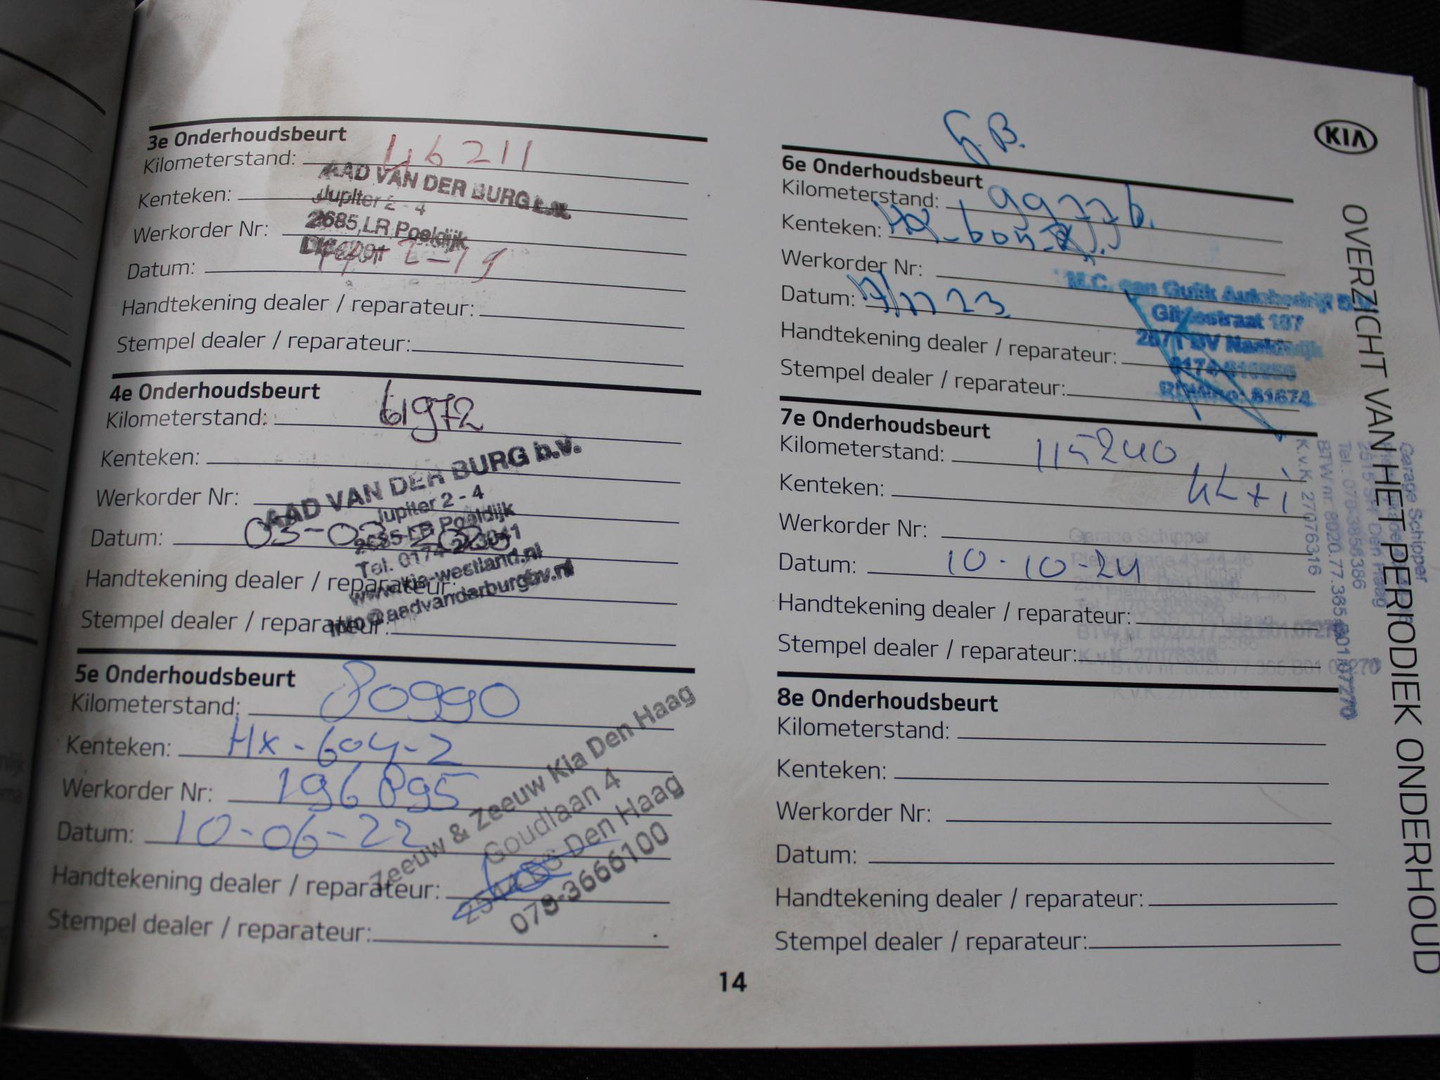 3e Onderhoudsbeurt
Kilometerstand: 46211
AAD VAN DER BURG b.v.
Kenteken:
Jupiter 2 - 4
Werkorder Nr:
2685 LR Poeldijk
Datum: 2-19
Handtekening dealer / reparateur:
Stempel dealer / reparateur:
4e Onderhoudsbeurt
Kilometerstand: 61972
Kenteken:
AAD VAN DER BURG b.v.
Werkorder Nr:
Jupiter 2 - 4
2685 LR Poeldijk
Datum: 03-03-2020
Tel. 0174-
www.kia-westland.nl
Handtekening dealer / reparateur:
info@aadvanderburgbv.nl
Stempel dealer / reparateur:
5e Onderhoudsbeurt
Kilometerstand: 80990
Kenteken: HX-604-Z
Werkorder Nr: 196895
Datum: 10-06-22
Zeeuw & Zeeuw Kia Den Haag
Goudlaan 4
Den Haag
070-3666100
Handtekening dealer / reparateur:
Stempel dealer / reparateur:
14
G.B.
6e Onderhoudsbeurt
Kilometerstand: 99776.
Kenteken:
Werkorder Nr:
M.C. van Gulik Autobedrijf B.V.
Datum: 23
107
Handtekening dealer / reparateur:
Stempel dealer / reparateur:
7e Onderhoudsbeurt
Kilometerstand: 115240
Kenteken:
Werkorder Nr:
Garage Schipper
Datum: 10-10-24
Handtekening dealer / reparateur:
Stempel dealer / reparateur:
8e Onderhoudsbeurt
Kilometerstand:
Kenteken:
Werkorder Nr:
Datum:
Handtekening dealer / reparateur:
Stempel dealer / reparateur:
KIA
OVERZICHT VAN HET PERIODIEK ONDERHOUD
Garage Schipper
Den Haag
Tel. 070-3858386
BTW nr. 8020.77.385.B01.07270
K.v.K. 27076316